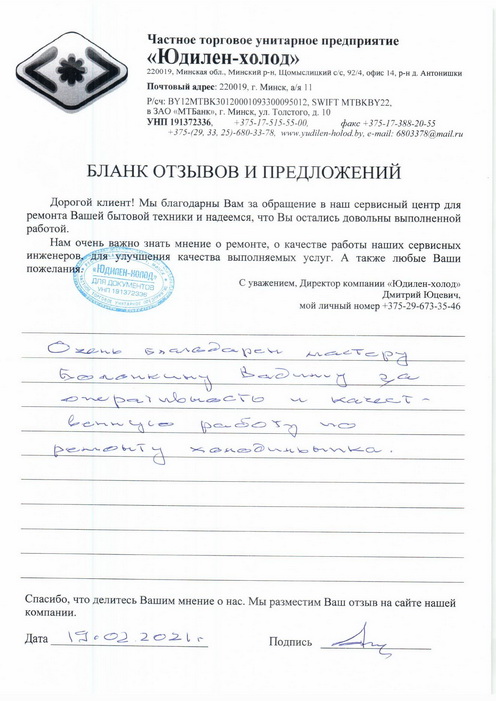 Частное торговое унитарное предприятие
«Юдилен-холод»
220019, Минская обл., Минский р-н, Щомыслицкий с/с, 92/4, офис 14, р-н д. Антонишки
Почтовый адрес: 220019, г. Минск, а/я 11
Р/сч: BY12MTBK30120001093300095012, SWIFT MTBKBY22,
в ЗАО «МТБанк», г. Минск, ул. Толстого, д. 10
УНП 191372336, +375-17-515-55-00, факс +375-17-388-20-55
+375-(29, 33, 25)-680-33-78, www.yudilen-holod.by, e-mail: 6803378@mail.ru
БЛАНК ОТЗЫВОВ И ПРЕДЛОЖЕНИЙ
Дорогой клиент! Мы благодарны Вам за обращение в наш сервисный центр для
ремонта Вашей бытовой техники и надеемся, что Вы остались довольны выполненной
работой.
Нам очень важно знать мнение о ремонте, о качестве работы наших сервисных
инженеров, для улучшения качества выполняемых услуг. А также любые Ваши
пожелания.
«ЮДИЛЕН-ХОЛОД»
ДЛЯ ДОКУМЕНТОВ
УНП 191372336
С уважением, Директор компании «Юдилен-холод»
Дмитрий Юцевич,
мой личный номер +375-29-673-35-46
Очень благодарен мастеру
Болонкину Вадиму за
оперативность и качест-
венную работу по
ремонту холодильника.
Спасибо, что делитесь Вашим мнением о нас. Мы разместим Ваш отзыв на сайте нашей
компании.
Дата 19.02.2021г Подпись